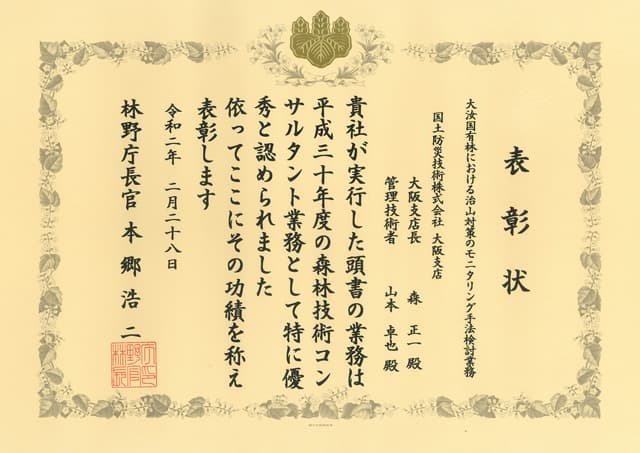 表彰状
大汝国有林における治山対策のモニタリング手法検討業務
国土防災技術株式会社 大阪支店
大阪支店長 森 正一 殿
管理技術者 山本 卓也 殿
貴社が実行した頭書の業務は
平成三十年度の森林技術コン
サルタント業務として特に優
秀と認められました
依ってここにその功績を称え
表彰します
令和二年 二月二十八日
林野庁長官 本郷浩二